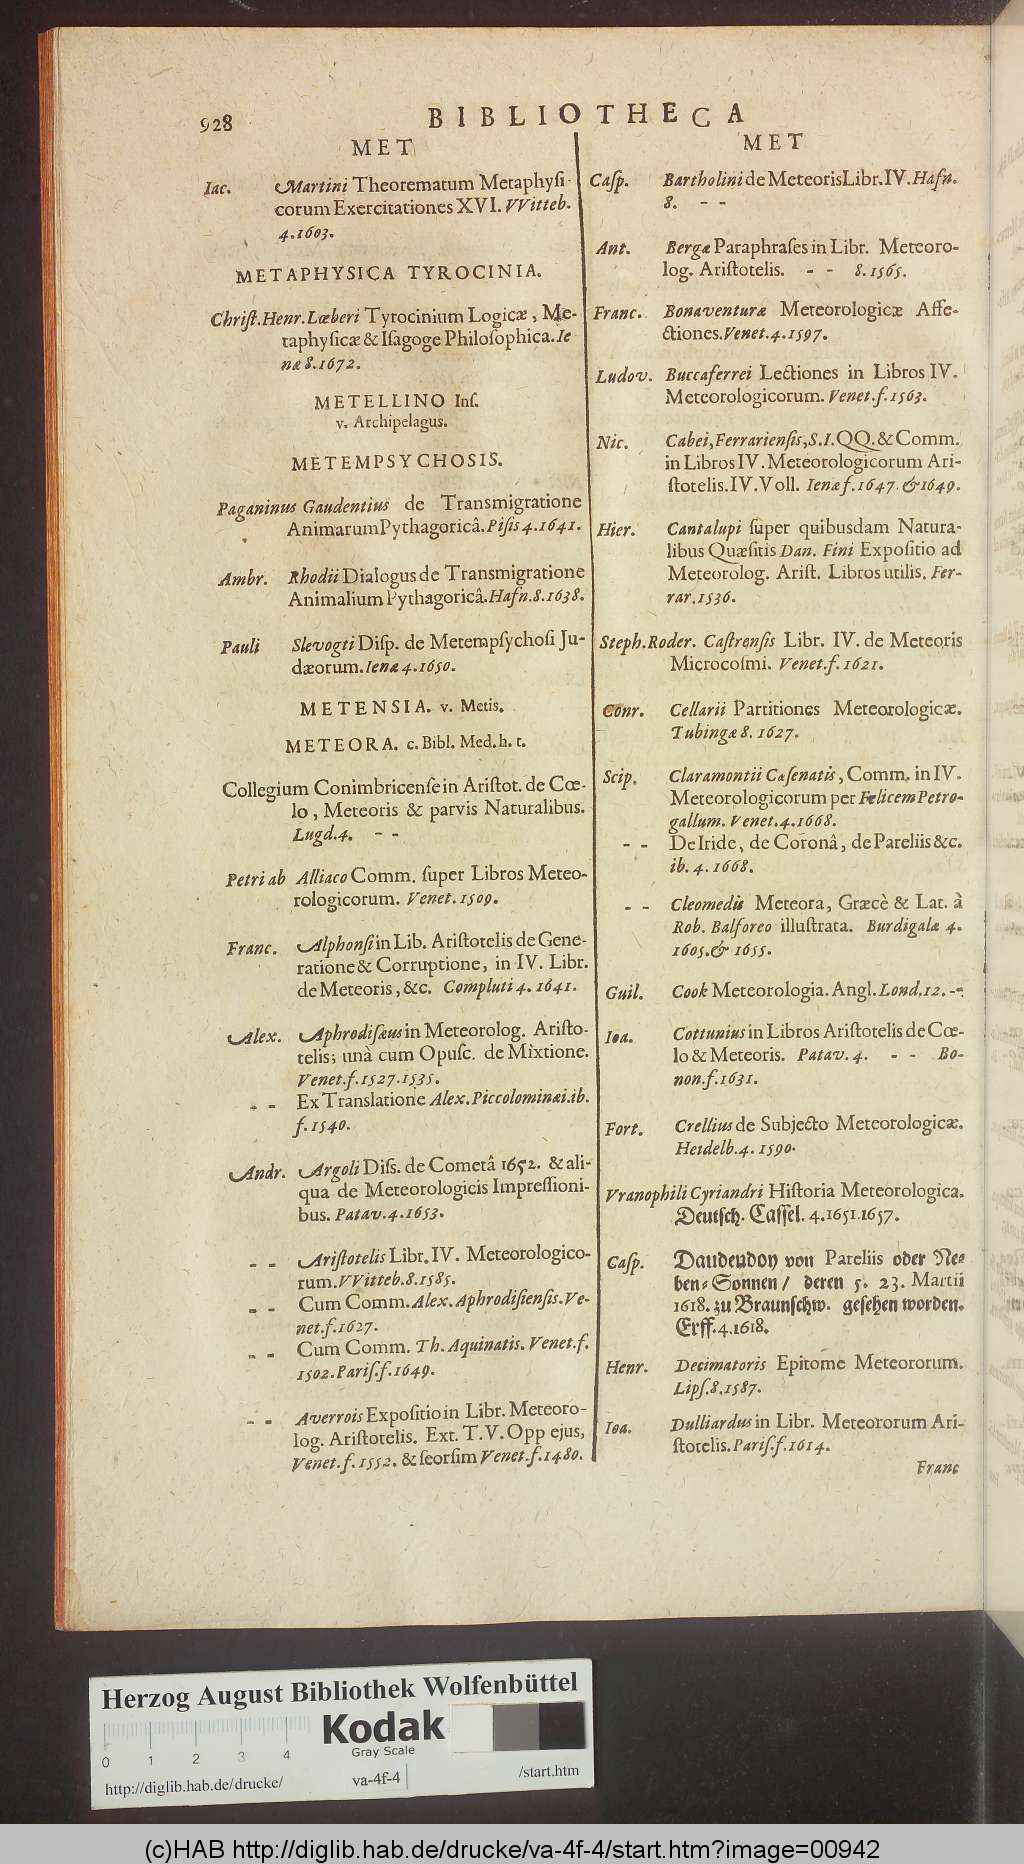 928
BIBLIOTHECA
MET
Iac. Martini Theorematum Metaphysi-
corum Exercitationes XVI. VVitteb.
4.1603.
METAPHYSICA TYROCINIA.
Christ.Henr.Læberi Tyrocinium Logicæ, Me-
taphysicæ & Isagoge Philosophica. Ie
næ 8.1672.
METELLINO Inſ.
v. Archipelagus.
METEMPSYCHOSIS.
Paganinus Gaudentius de Transmigratione
Animarum Pythagoricâ. Piſis 4.1641.
Ambr. Rhodii Dialogus de Transmigratione
Animalium Pythagoricâ. Hafn.8.1638.
Pauli Slevogti Diſp. de Metempſychoſi Ju-
dæorum. Ienæ 4.1650.
METENSIA. v. Metis.
METEORA. c. Bibl. Med. h. t.
Collegium Conimbricenſe in Ariſtot. de Cœ-
lo, Meteoris & parvis Naturalibus.
Lugd.4. - -
Petri ab Alliaco Comm. ſuper Libros Meteo-
rologicorum. Venet.1509.
Franc. Alphonſi in Lib. Ariſtotelis de Gene-
ratione & Corruptione, in IV. Libr.
de Meteoris, &c. Compluti 4. 1641.
Alex. Aphrodiſæus in Meteorolog. Ariſto-
telis; unà cum Opuſc. de Mixtione.
Venet.f.1527.1535.
- - Ex Translatione Alex. Piccolominæi. ib.
f.1540.
Andr. Argoli Diſſ. de Cometâ 1652. & ali-
qua de Meteorologicis Impreſſioni-
bus. Patav.4.1653.
- - Ariſtotelis Libr. IV. Meteorologico-
rum. VVitteb.8.1585.
- - Cum Comm. Alex. Aphrodiſienſis. Ve-
net.f.1627.
- - Cum Comm. Th. Aquinatis. Venet.f.
1502. Pariſ.f.1649.
- - Averrois Expoſitio in Libr. Meteoro-
log. Ariſtotelis. Ext. T. V. Opp ejus,
Venet.f.1552. & ſeorſim Venet.f.1480.
MET
Caſp. Bartholini de Meteoris Libr. IV. Hafn.
8. - -
Ant. Bergæ Paraphraſes in Libr. Meteoro-
log. Ariſtotelis. - - 8.1565.
Franc. Bonaventuræ Meteorologicæ Affe-
ctiones. Venet.4.1597.
Ludov. Buccaferrei Lectiones in Libros IV.
Meteorologicorum. Venet.f.1563.
Nic. Cabei, Ferrarienſis, S.I. QQ. & Comm.
in Libros IV. Meteorologicorum Ari-
ſtotelis. IV. Voll. Ienæ f.1647. & 1649.
Hier. Cantalupi ſuper quibusdam Natura-
libus Quæſitis Dan. Fini Expoſitio ad
Meteorolog. Ariſt. Libros utilis. Fer-
rar.1536.
Steph. Roder. Caſtrenſis Libr. IV. de Meteoris
Microcoſmi. Venet.f.1621.
Conr. Cellarii Partitiones Meteorologicæ.
Tubingæ 8. 1627.
Scip. Claramontii Cæſenatis, Comm. in IV.
Meteorologicorum per Felicem Petro-
gallum. Venet.4.1668.
- - De Iride, de Coronâ, de Pareliis &c.
ib. 4. 1668.
- - Cleomedis Meteora, Græcè & Lat. à
Rob. Balforeo illuſtrata. Burdigalæ 4.
1605. & 1655.
Guil. Cook Meteorologia. Angl. Lond.12. --
Ioa. Cottunius in Libros Ariſtotelis de Cœ-
lo & Meteoris. Patav. 4. - - Bo-
non.f.1631.
Fort. Crellius de Subjecto Meteorologicæ.
Heidelb.4. 1590.
Vranophili Cyriandri Hiſtoria Meteorologica.
Deutſch. Caſſel. 4.1651.1657.
Caſp. Daudendoy von Pareliis oder Ne-
ben-Sonnen / deren 5. 23. Martii
1618. zu Braunſchw. geſehen worden.
Erff.4.1618.
Henr. Decimatoris Epitome Meteororum.
Lipſ.8.1587.
Ioa. Dulliardus in Libr. Meteororum Ari-
ſtotelis. Pariſ.f.1614.
Franc
Herzog August Bibliothek Wolfenbüttel
Kodak
Gray Scale
0 1 2 3 4
http://diglib.hab.de/drucke/ va-4f-4 /start.htm
(c)HAB http://diglib.hab.de/drucke/va-4f-4/start.htm?image=00942